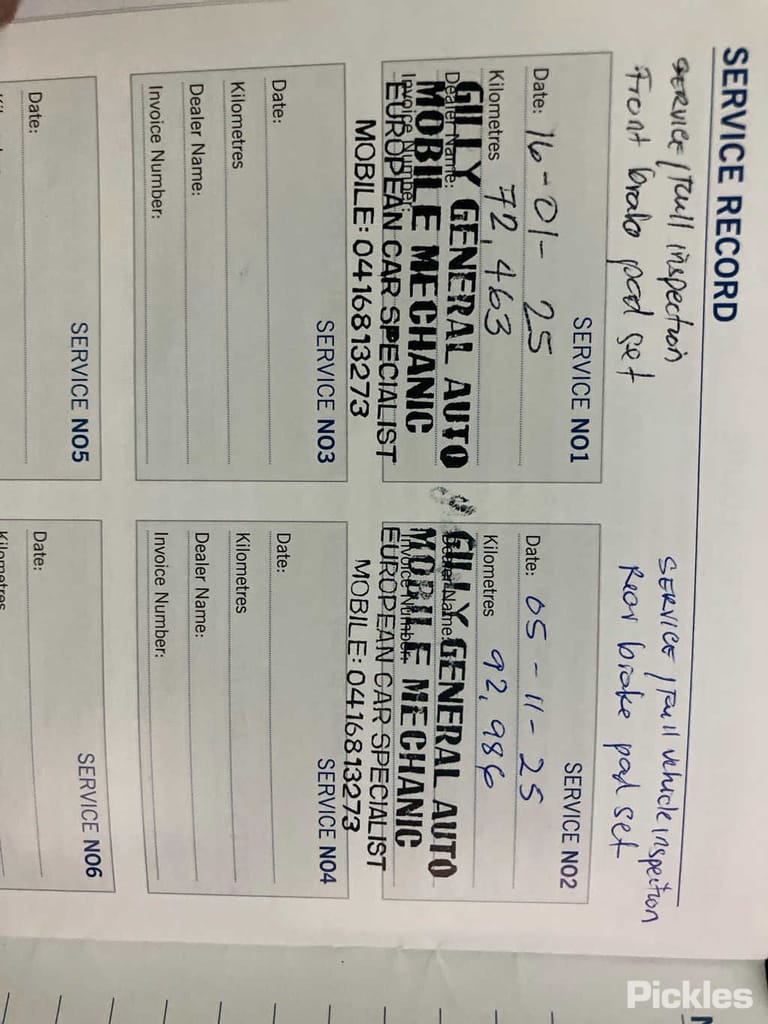 SERVICE RECORD
SERVICE / Full inspection
Front brake pad set
SERVICE NO1
Date: 16-01-25
Kilometres 72,463
Dealer Name:
Invoice Number:
GILLY GENERAL AUTO
MOBILE MECHANIC
EUROPEAN CAR SPECIALIST
MOBILE: 0416813273
SERVICE / Full vehicle inspection
Rear brake pad set
SERVICE NO2
Date: 05-11-25
Kilometres 92,986
Dealer Name:
Invoice Number:
GILLY GENERAL AUTO
MOBILE MECHANIC
EUROPEAN CAR SPECIALIST
MOBILE: 0416813273
SERVICE NO3
Date:
Kilometres
Dealer Name:
Invoice Number:
SERVICE NO4
Date:
Kilometres
Dealer Name:
Invoice Number:
SERVICE NO5
Date:
SERVICE NO6
Date:
Kilometres
Pickles